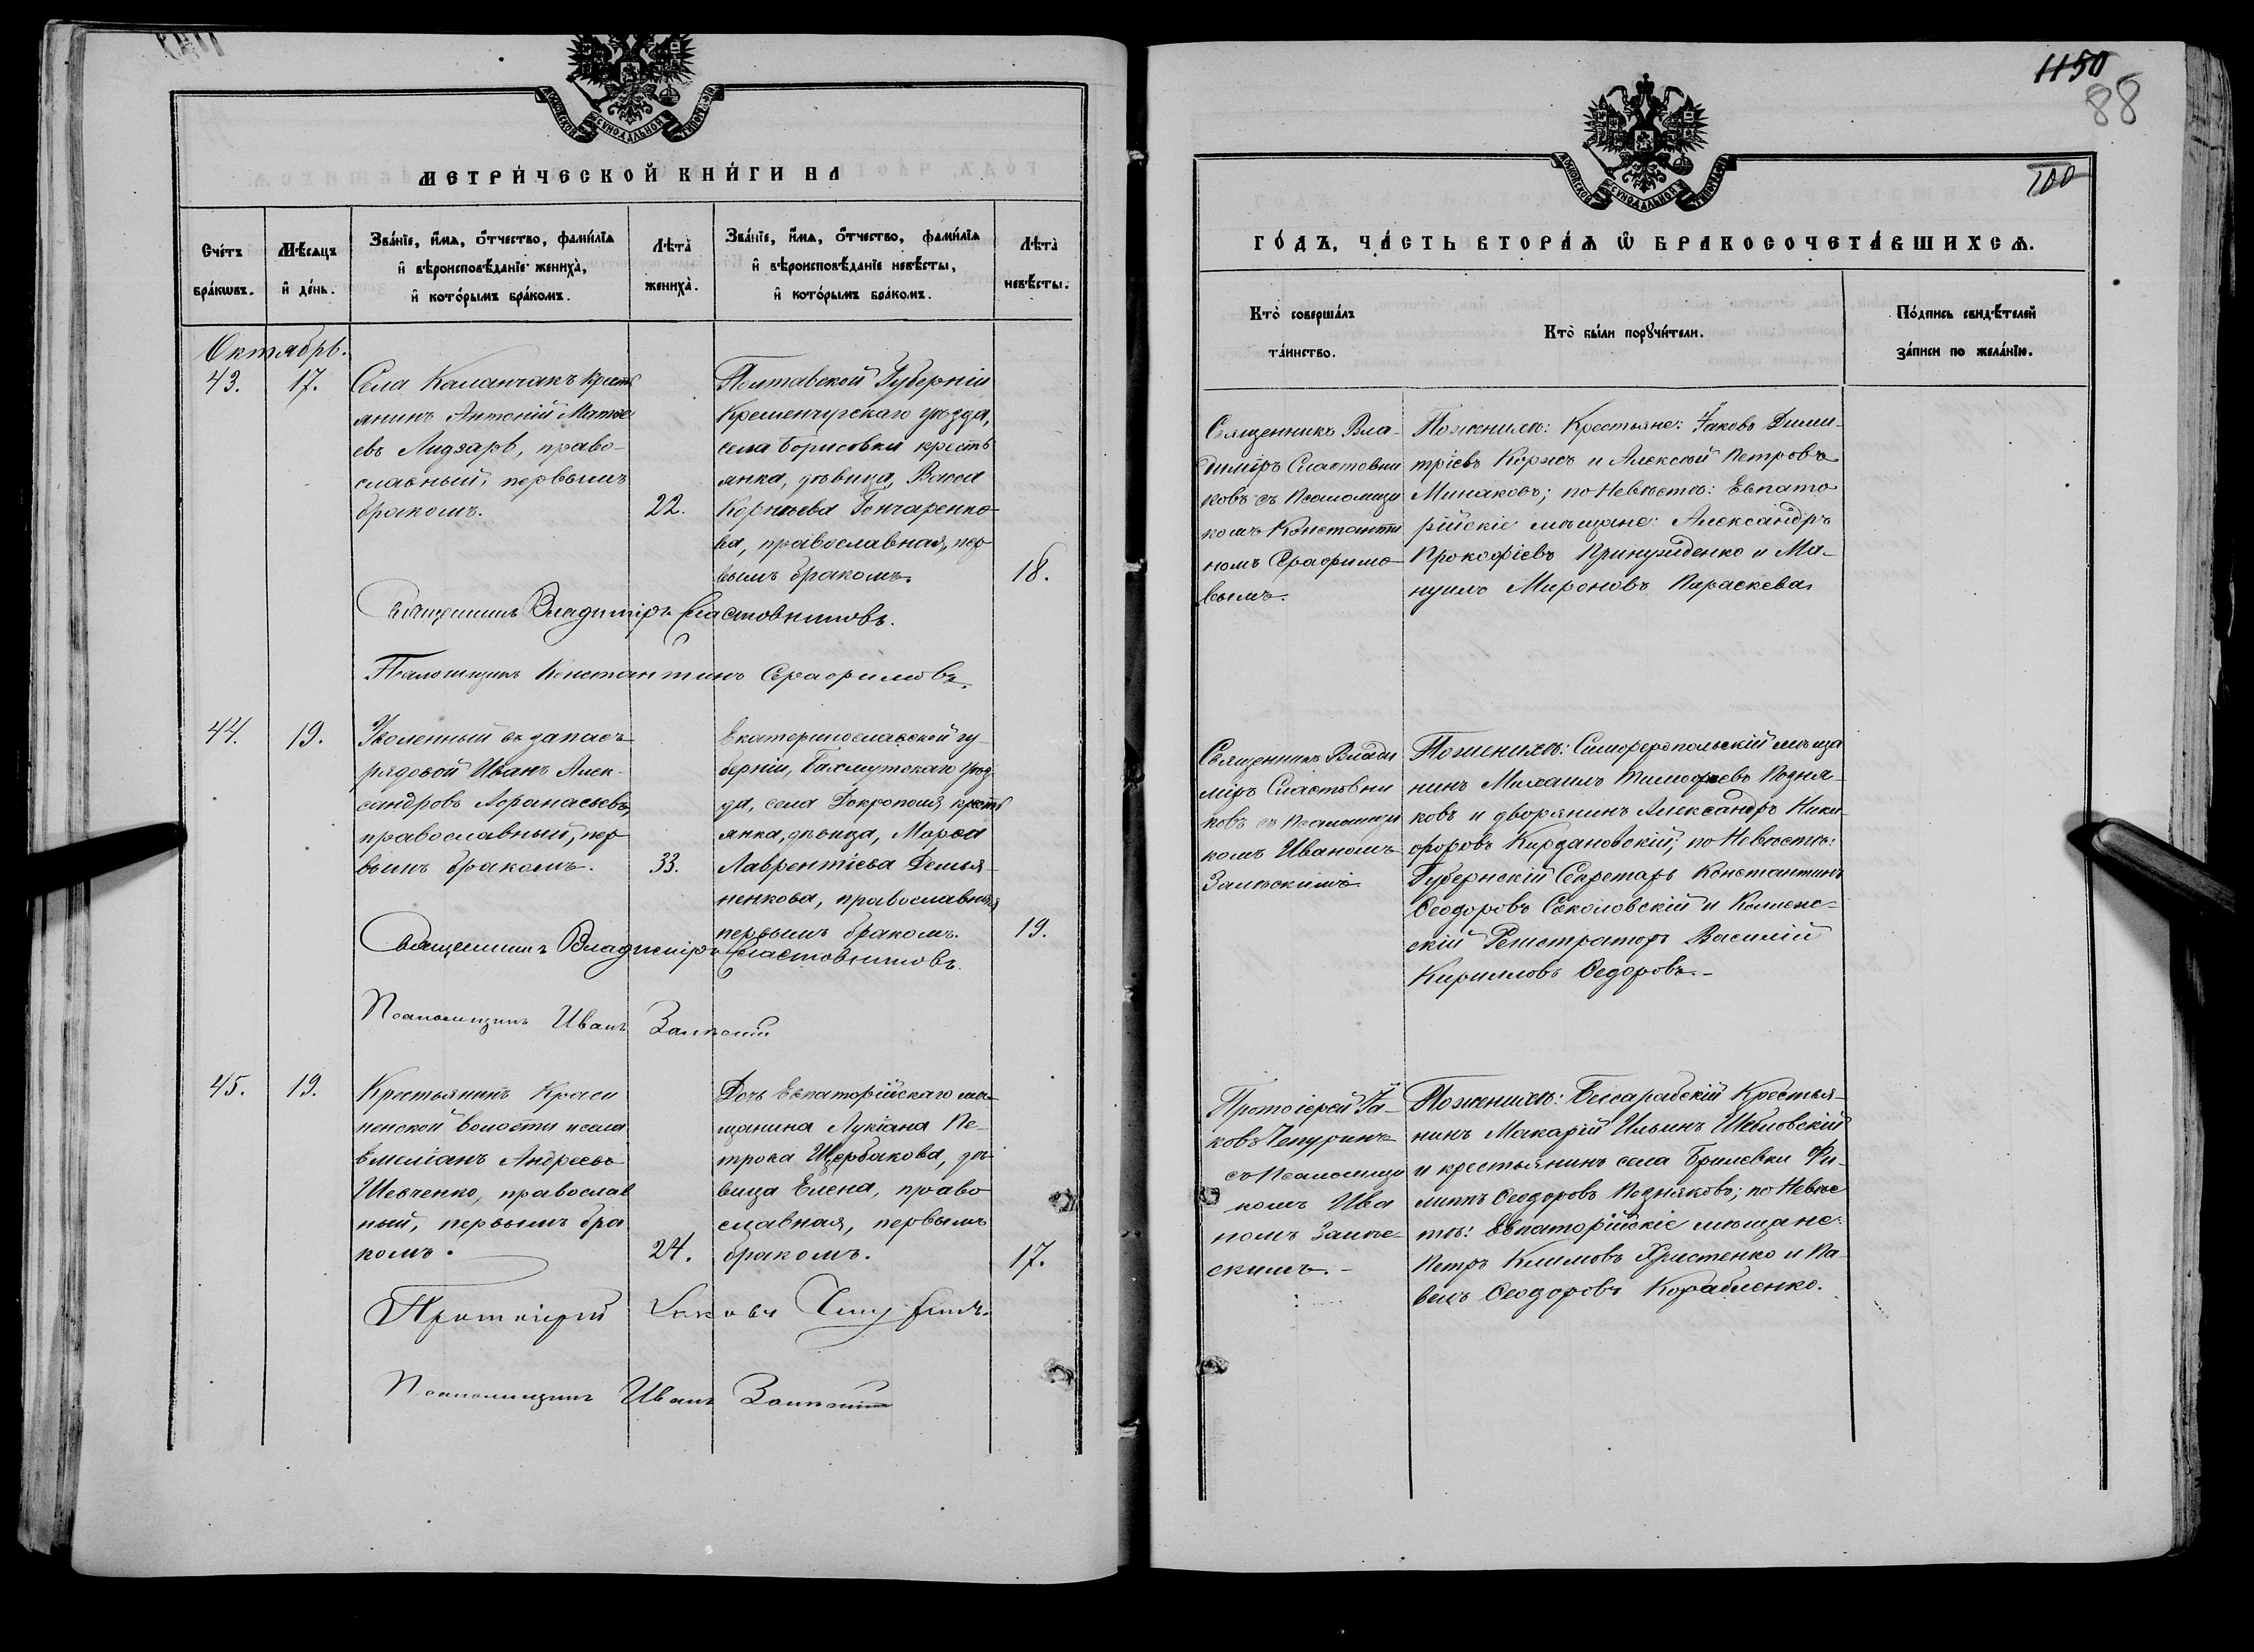 МОСКОВСКОЙ СѴНОДАЛЬНОЙ ТИПОГРАФІИ
МЕТРИ́ЧЕСКОЙ КНИ́ГИ НА
Сче́тъ бра́кѡвъ.
Мѣ́сяцъ и҆ де́нь.
Зва́нїе, и҆́мѧ, ѻ҆́тчество, фами́лїѧ
и҆ вѣроисповѣ́данїе жениха̀,
и҆ кото́рымъ бра́комъ.
Лѣта̀ жениха̀.
Зва́нїе, и҆́мѧ, ѻ҆́тчество, фами́лїѧ
и҆ вѣроисповѣ́данїе невѣ́сты,
и҆ кото́рымъ бра́комъ.
Лѣта̀ невѣ́сты.
Октябрь.
43.
17.
Села Каланчакъ кресть
янинъ Антоній Матѳе
евъ Лидзарь, право-
славный, первымъ
бракомъ.
22.
Полтавской Губерніи
Кременчугскаго уѣзда,
села Борисовки кресть
янка, дѣвица, Васса
Корнѣева Гончаренко
ва, православная, пер
вымъ бракомъ.
18.
Священникъ Владиміръ Сластовниковъ.
Псаломщикъ Константинъ Серафимовъ.
44.
19.
Уволенный въ запасъ
рядовой Иванъ Алек-
сандровъ Аѳанасьевъ,
православный, пер
вымъ бракомъ.
33.
Екатеринославской гу
берніи, Бахмутскаго уѣз
да, села Докрополя кресть
янка, дѣвица, Марѳа
Лаврентіева Демья
ненкова, православная
первымъ бракомъ.
19.
Священникъ Владиміръ Сластовниковъ.
Псаломщикъ Иванъ Залѣскій
45.
19.
Крестьянинъ Красн
ненской волости и села
Емеліанъ Андреевъ
Шевченко, православ
ный, первымъ бра
комъ.
24.
Дочь Евпаторійскаго мѣ-
щанина Лукіана Пе-
трова Щербакова, дѣ-
вица Елена, право
славная, первымъ
бракомъ.
17.
Протоіерей Іаковъ Чепуринъ.
Псаломщикъ Иванъ Залѣскій
1150
88
100
МОСКОВСКОЙ СѴНОДАЛЬНОЙ ТИПОГРАФІИ
ГО́ДЪ, ЧА́СТЬ ВТОРА́Ѧ Ѽ БРАКОСОЧЕТА́ВШИХСѦ.
Кто̀ соверша́лъ
та́инство.
Кто̀ бы́ли порꙋчи́тели.
По́дпись свидѣ́телей
за́писи по жела́нїю.
Священникъ Вла-
диміръ Сластовни
ковъ съ Псаломщи
комъ Константи
номъ Серафимо
вымъ.
По женихѣ: Крестьяне: Іаковъ Дими-
тріевъ Коржъ и Алексѣй Петровъ
Минаковъ; по Невѣстѣ: Евпато
рійскіе мѣщане: Александръ
Прокофіевъ Принужденко и Ма-
нуилъ Мироновъ Параскева
Священникъ Влади
міръ Сластовни
ковъ съ Псаломщи
комъ Иваномъ
Залѣскимъ
По женихѣ: Симферопольскій мѣща
нинъ Михаилъ Тимофѣевъ Позня-
ковъ и дворянинъ Александръ Ники-
форовъ Кирдановскій; по Невѣстѣ:
Губернскій Секретарь Константинъ
Ѳеодоровъ Соколовскій и Коллеж-
скій Регистраторъ Василій
Кирилловъ Ѳедоровъ.-
Протоіерей Іа-
ковъ Чепуринъ
съ Псаломщи
комъ Ива
номъ Залѣс-
скимъ.-
По женихѣ: Бессарабскій Крестья-
нинъ Макарій Ильинъ Шебловскій
и крестьянинъ села Брилевки Фи-
липпъ Ѳеодоровъ Позняковъ; по Невѣс
тѣ: Евпаторійскіе мѣщане:
Петръ Климовъ Христенко и Па-
велъ Ѳеодоровъ Корабленко.